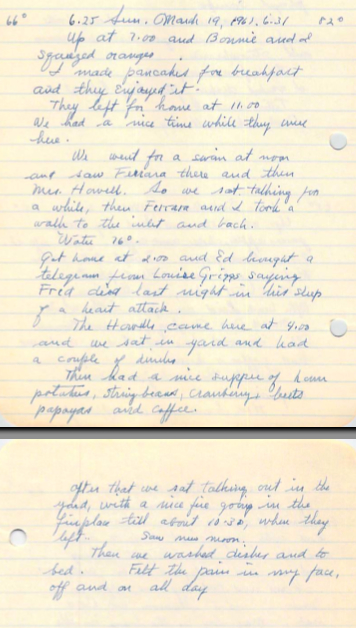 66° 6.25 Sun. March 19, 1961. 6.31 82°
Up at 7.00 and Bonnie and I
squeezed oranges.
I made pancakes for breakfast
and they enjoyed it.
They left for home at 11.00
We had a nice time while they were
here.
We went for a swim at noon
and saw Ferrara there and then
Mrs. Howell. So we sat talking for
a while, then Ferrara and I took a
walk to the inlet and back.
Water 76°.
Got home at 2.00 and Ed brought a
telegram from Louise Griggs saying
Fred died last night in his sleep
of a heart attack.
The Howells came here at 4.00
and we sat in yard and had
a couple of drinks
Then had a nice supper of ham
potatoes, string beans, cranberry, beets
papayas and coffee.
After that we sat talking out in the
yard, with a nice fire going in the
fireplace till about 10.30, when they
left. Saw new moon.
Then we washed dishes and to
bed. Felt the pain in my face,
off and on all day